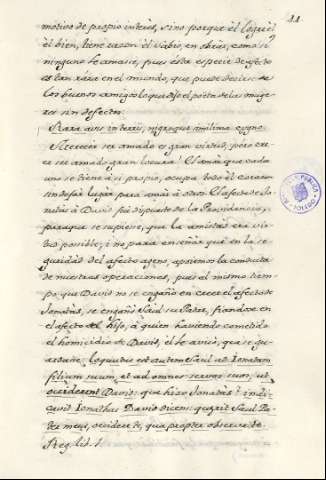 11
motivo de propio interès, sino porque èl logre èl
el bien, tiene razon el Sabio, en obrar, como si
ninguno le amase, pues esta especie de afecto
es tan rara en el mundo, que puede decirse de
los buenos amigos lo que dijo el poeta de las muge-
res sin defecto:
Rara avis in terris, nigroque simillima cygno.
Merecer ser amado es gran virtud, pero cre-
er ser amado gran locura! El amòr que cada
uno se tiene à si propio, ocupa todo el corazon
sin dejar lugar para amàr à otro. El afecto de Jo-
natàs à David fuè dispuesto de la Providencia,
paraque se supiese, que la amistad era vir-
tud possible, i no para enseñar que en la se-
guridad del afecto ageno, apoiemos la conducta
de nuestras operaciones, pues al mismo tiem-
po, que David no se engañò en creer el afecto de
Jonatàs, se engañò Saùl su Padre, fiandose en
el afecto del hijo, à quien haviendo cometido
el homicidio de David, èl le aviso, que se gu-
ardase: loquutus est autem Saul ad Jonatam
filium suum, et ad omnes servos suos, ut
occiderent David: que hizo Jonatàs? indi-
cavit Jonathas David dicens: quærit Saul Pa-
ter meus, occidere te, qua propter observa te.
Reg. lib. 1.